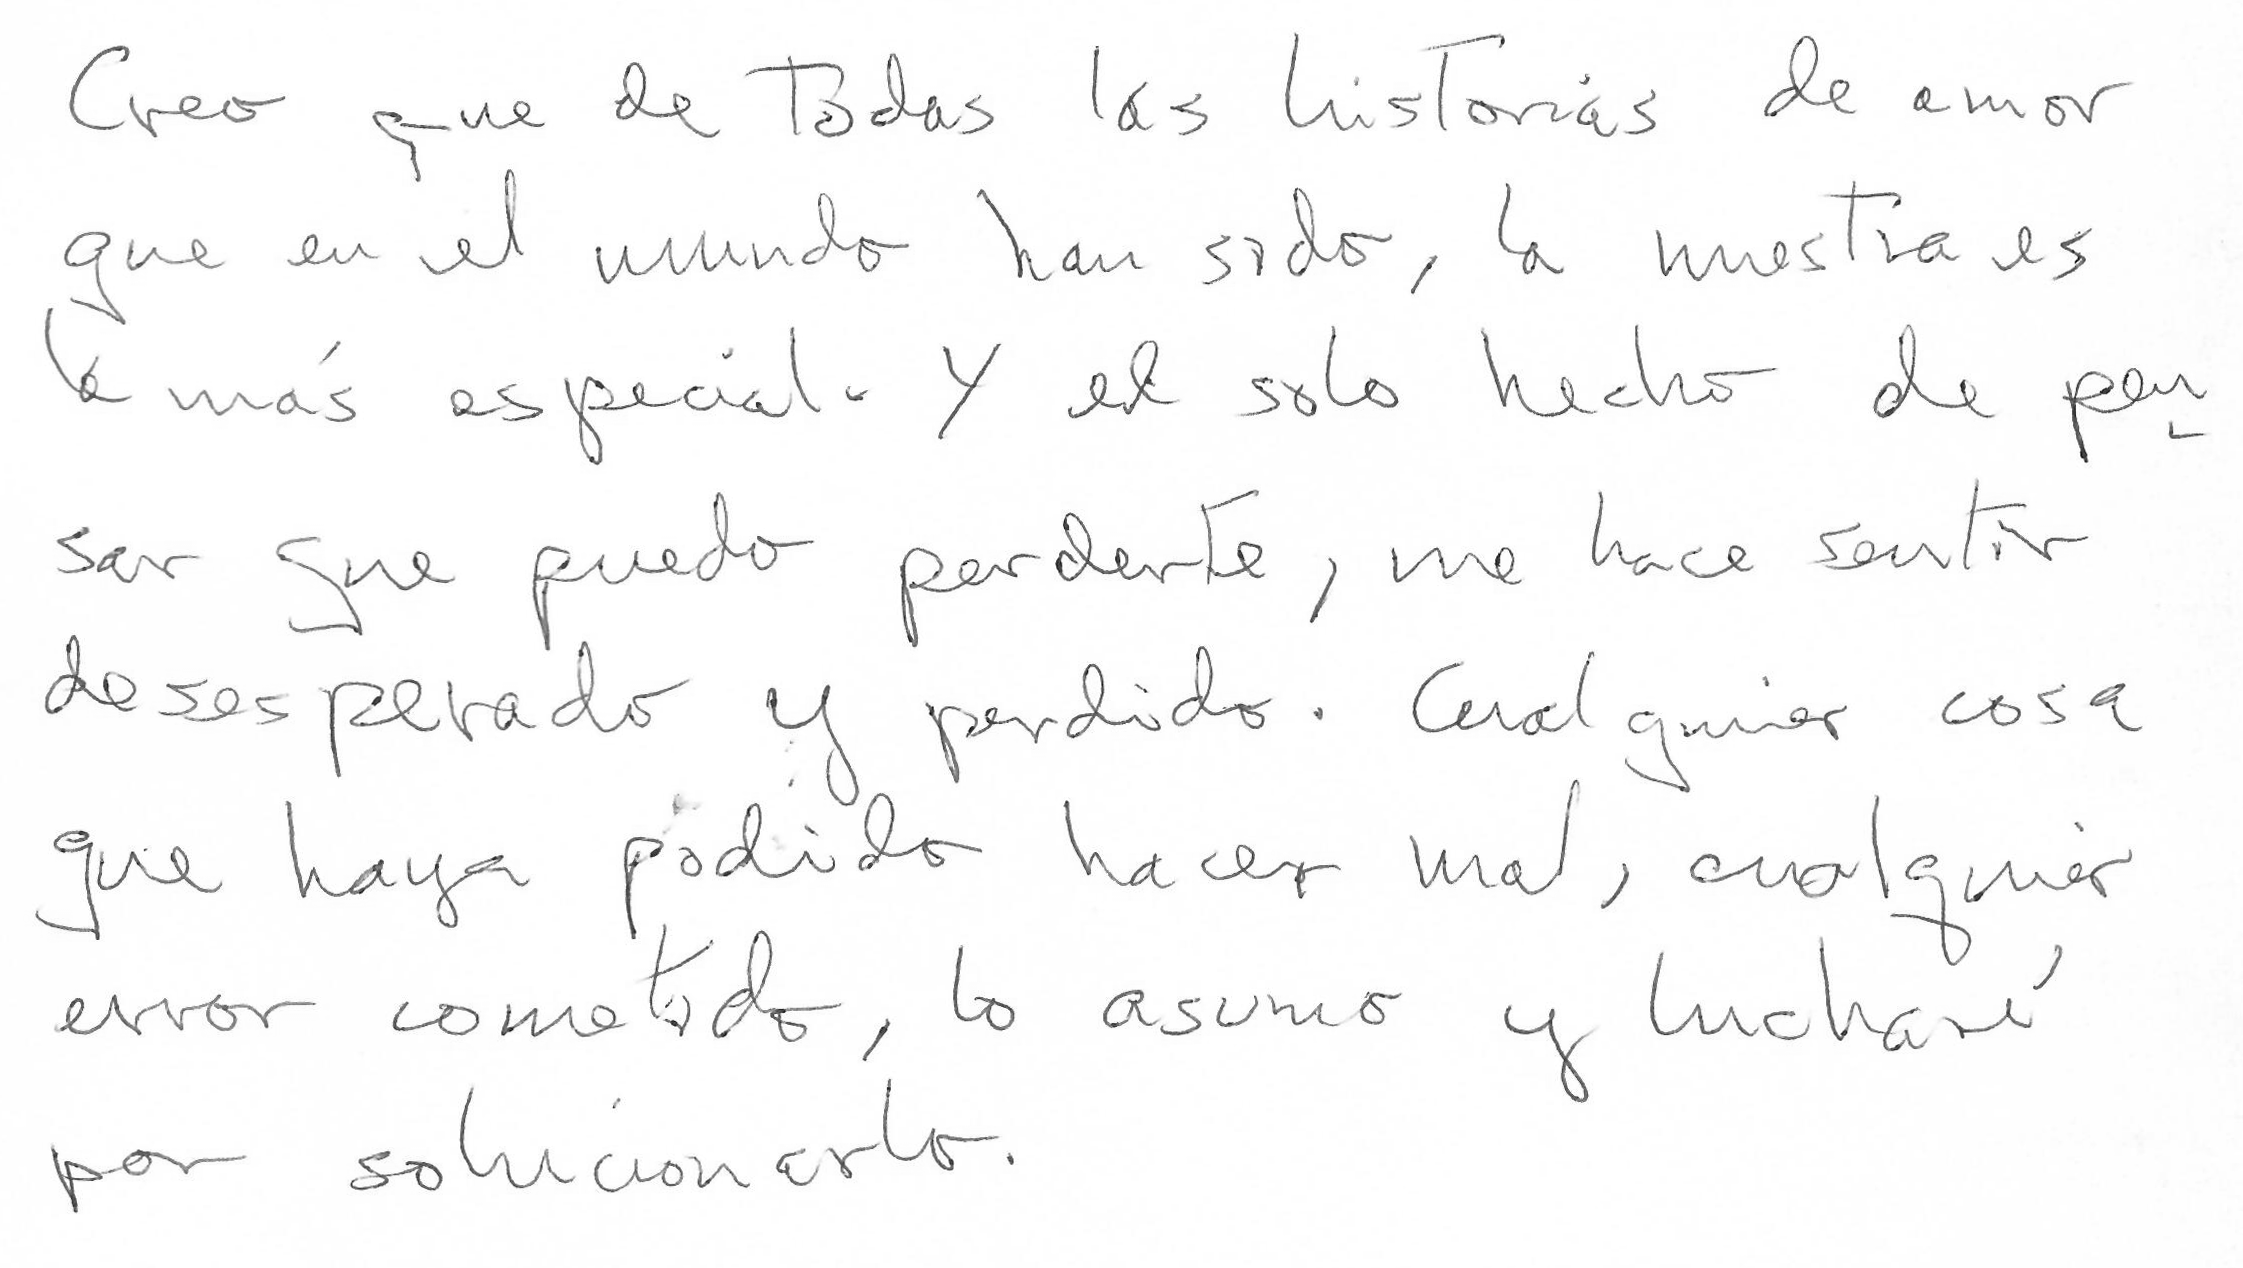 Creo que de Todas las historias de amor
que en el mundo han sido, la nuestra es
la más especial. Y el solo hecho de pen-
sar que puedo perderte, me hace sentir
desesperado y perdido. Cualquier cosa
que haya podido hacer mal, cualquier
error cometido, lo asumo y lucharé
por solucionarlo.